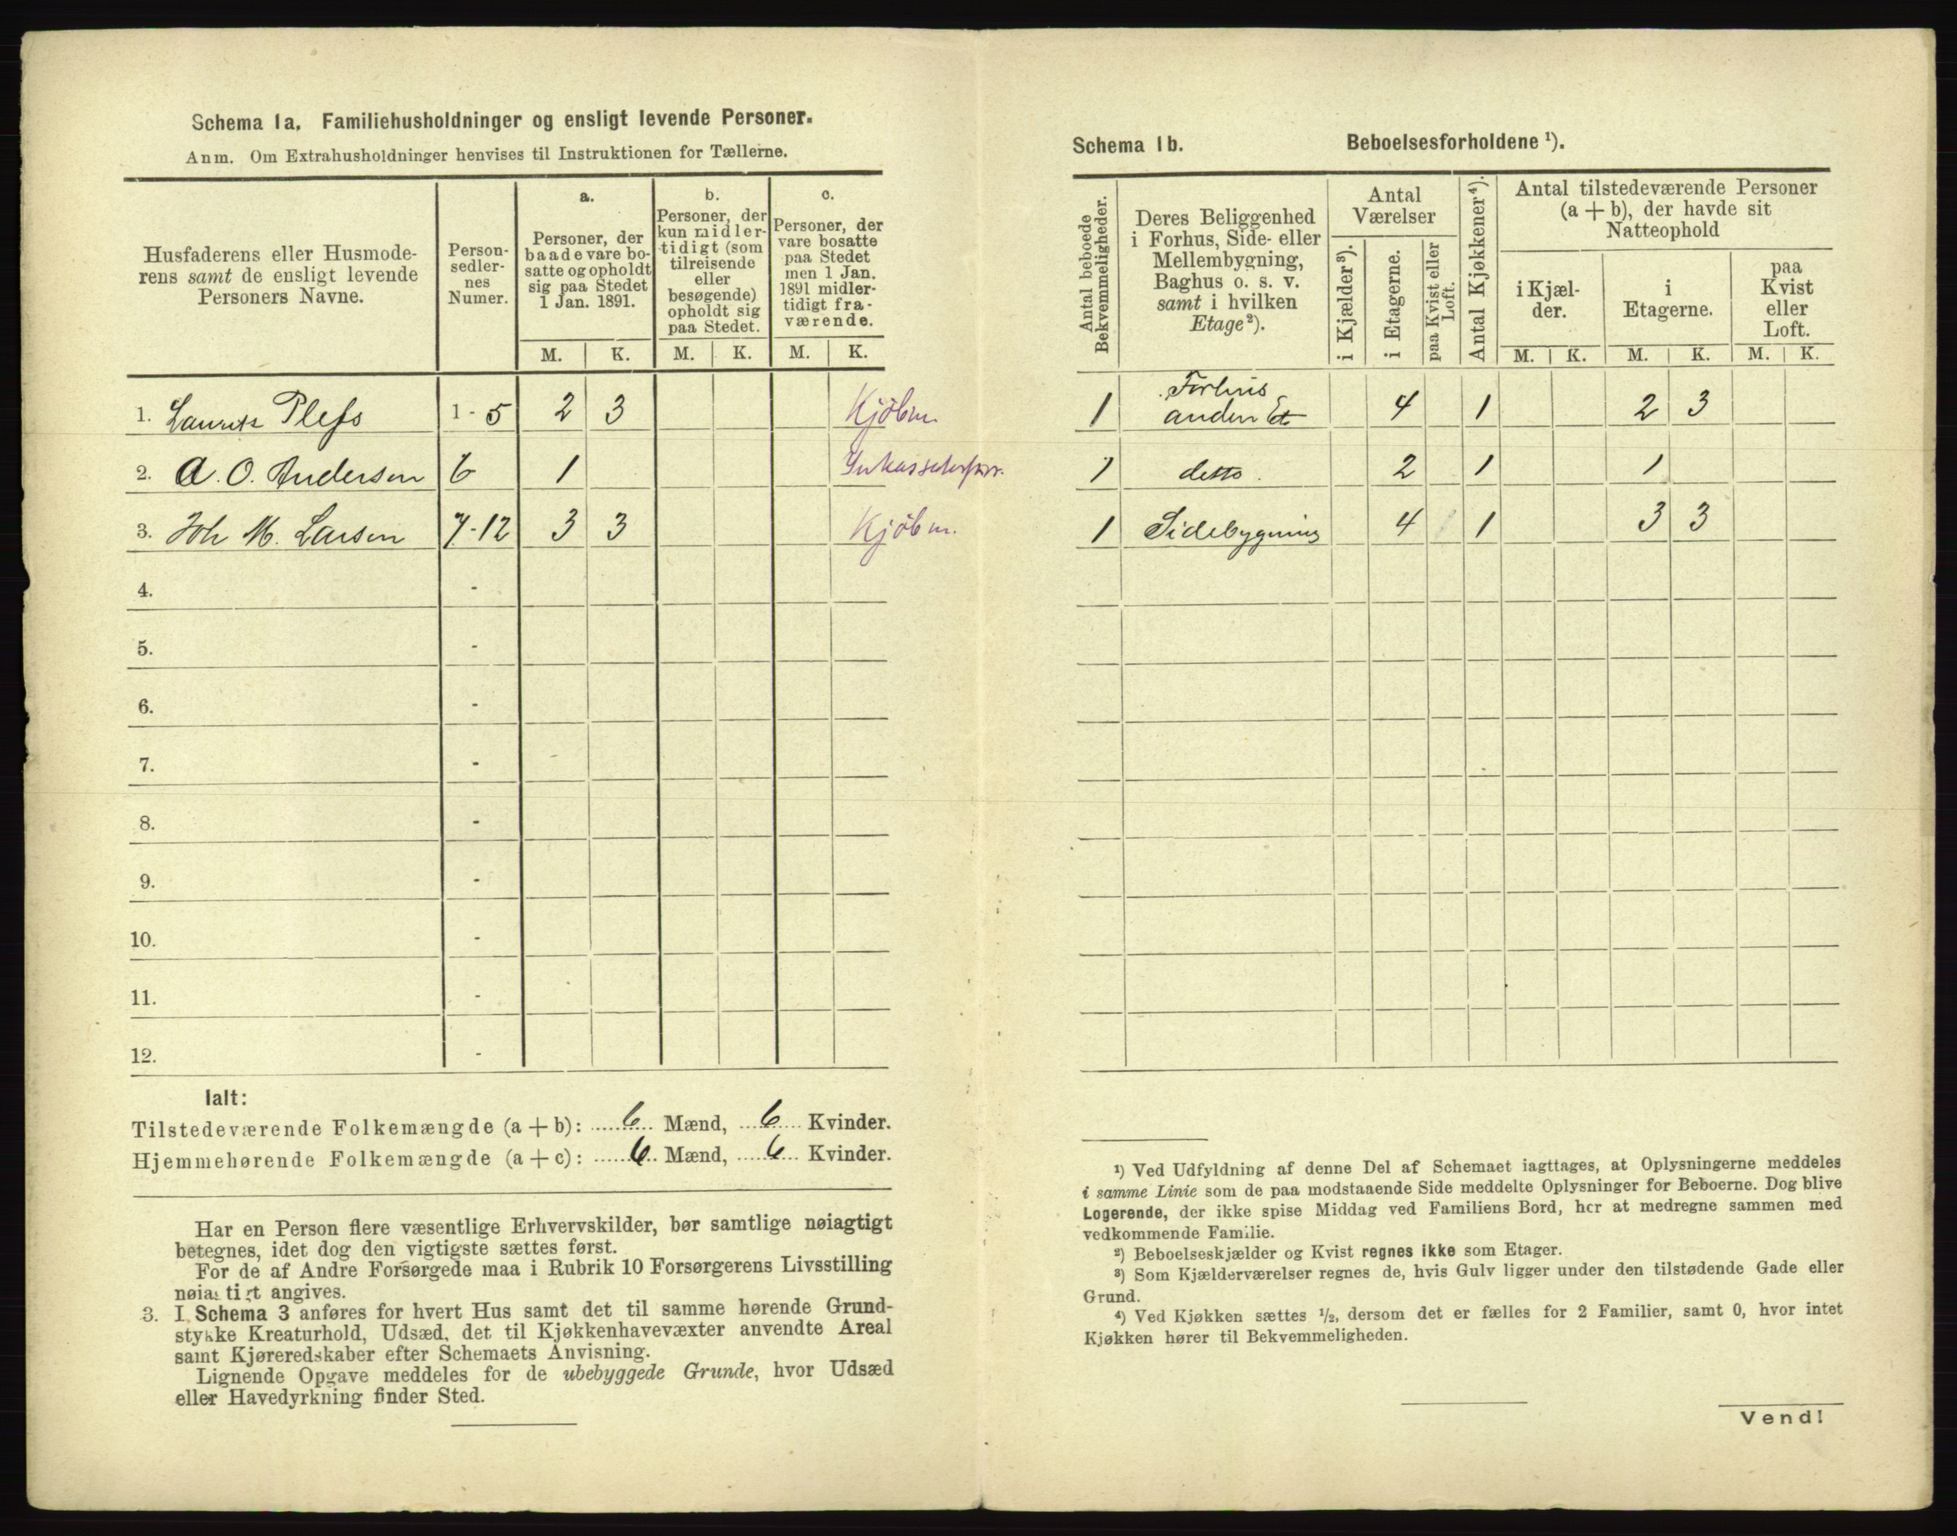 Schema 1a. Familiehusholdninger og ensligt levende Personer.
Anm. Om Extrahusholdninger henvises til Instruktionen for Tællerne.
Husfaderens eller Husmode-
rens samt de ensligt levende
Personers Navne.
Person-
sedler-
nes
Numer.
a.
Personer, der
baade vare bo-
satte og opholdt
sig paa Stedet
1 Jan. 1891.
b.
Personer, der
kun midler-
tidigt (som
tilreisende
eller
besøgende)
opholdt sig
paa Stedet.
c.
Personer, der
vare bosatte
paa Stedet
men 1 Jan.
1891 midler-
tidigt fra-
værende.
M. K. M. K. M. K.
1. Lauritz Pless 1-5 2 3 Kjöbm.
2. A. O. Andersen 6 1
3. Joh M. Larsen 7-12 3 3 Kjöbm.
4. -
5. -
6. -
7. -
8. -
9. -
10. -
11. -
12. -
Ialt:
Tilstedeværende Folkemængde (a + b): 6 Mænd, 6 Kvinder.
Hjemmehørende Folkemængde (a + c): 6 Mænd, 6 Kvinder.
Har en Person flere væsentlige Erhvervskilder, bør samtlige nøiagtigt
betegnes, idet dog den vigtigste sættes først.
For de af Andre Forsørgede maa i Rubrik 10 Forsørgerens Livsstilling
nøiagtigt angives.
3. I Schema 3 anføres for hvert Hus samt det til samme hørende Grund-
stykke Kreaturhold, Udsæd, det til Kjøkkenhavevæxter anvendte Areal
samt Kjøreredskaber efter Schemaets Anvisning.
Lignende Opgave meddeles for de ubebyggede Grunde, hvor Udsæd
eller Havedyrkning finder Sted.
Schema 1b. Beboelsesforholdene ¹).
Antal beboede
Bekvemmeligheder.
Deres Beliggenhed
i Forhus, Side- eller
Mellembygning,
Baghus o. s. v.
samt i hvilken
Etage²).
Antal
Værelser
i Kjælder³).
i Etagerne.
paa Kvist eller
Loft.
Antal Kjøkkener⁴).
Antal tilstedeværende Personer
(a + b), der havde sit
Natteophold
i Kjæl-
der.
i
Etagerne.
paa
Kvist
eller
Loft.
M. K. M. K. M. K.
1 Forhus
anden Et 4 1 2 3
1 detto. 2 1 1
1 Sidebygning 4 1 3 3
¹) Ved Udfyldning af denne Del af Schemaet iagttages, at Oplysningerne meddeles
i samme Linie som de paa modstaaende Side meddelte Oplysninger for Beboerne. Dog blive
Logerende, der ikke spise Middag ved Familiens Bord, her at medregne sammen med
vedkommende Familie.
²) Beboelseskjælder og Kvist regnes ikke som Etager.
³) Som Kjælderværelser regnes de, hvis Gulv ligger under den tilstødende Gade eller
Grund.
⁴) Ved Kjøkken sættes ½, dersom det er fælles for 2 Familier, samt 0, hvor intet
Kjøkken hører til Bekvemmeligheden.
Vend!